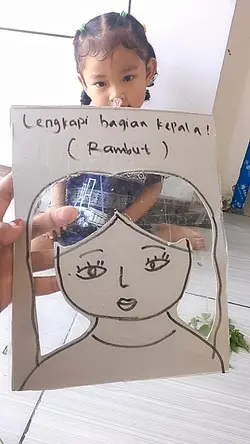 Lengkapi bagian kepala!
( Rambut )